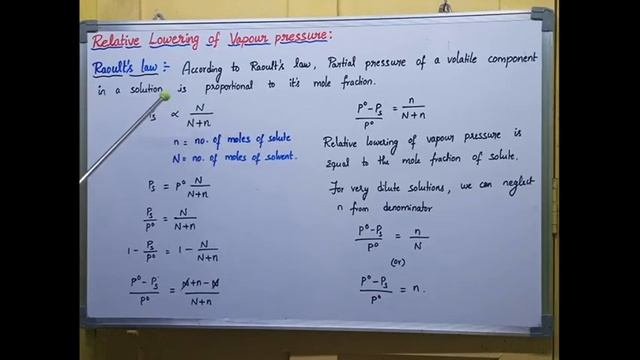 Relative Lowering of Vapour pressure:
Raoult's law :- According to Raoult's law, Partial pressure of a volatile component
in a solution is proportional to it's mole fraction.
s ∝ N/N+n
n = no. of moles of solute
N = no. of moles of solvent.
Ps = P° N/N+n
Ps/P° = N/N+n
1 - Ps/P° = 1 - N/N+n
P° - Ps/P° = N + n - N/N+n
P° - Ps/P° = n/N+n
Relative lowering of vapour pressure is
equal to the mole fraction of solute.
For very dilute solutions, we can neglect
n from denominator
P° - Ps/P° = n/N
(or)
P° - Ps/P° = n.